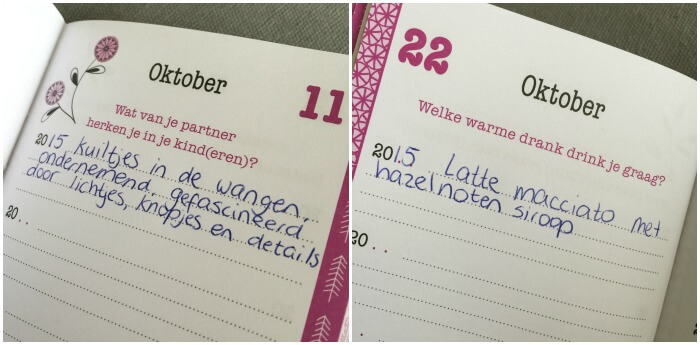 Oktober
11
Wat van je partner
herken je in je kind(eren)?
2015 Kuiltjes in de wangen,
ondernemend, gefascineerd
door lichtjes, knopjes en details
20..
22
Oktober
Welke warme drank drink je graag?
2015 Latte macciato met
hazelnoten siroop
20..